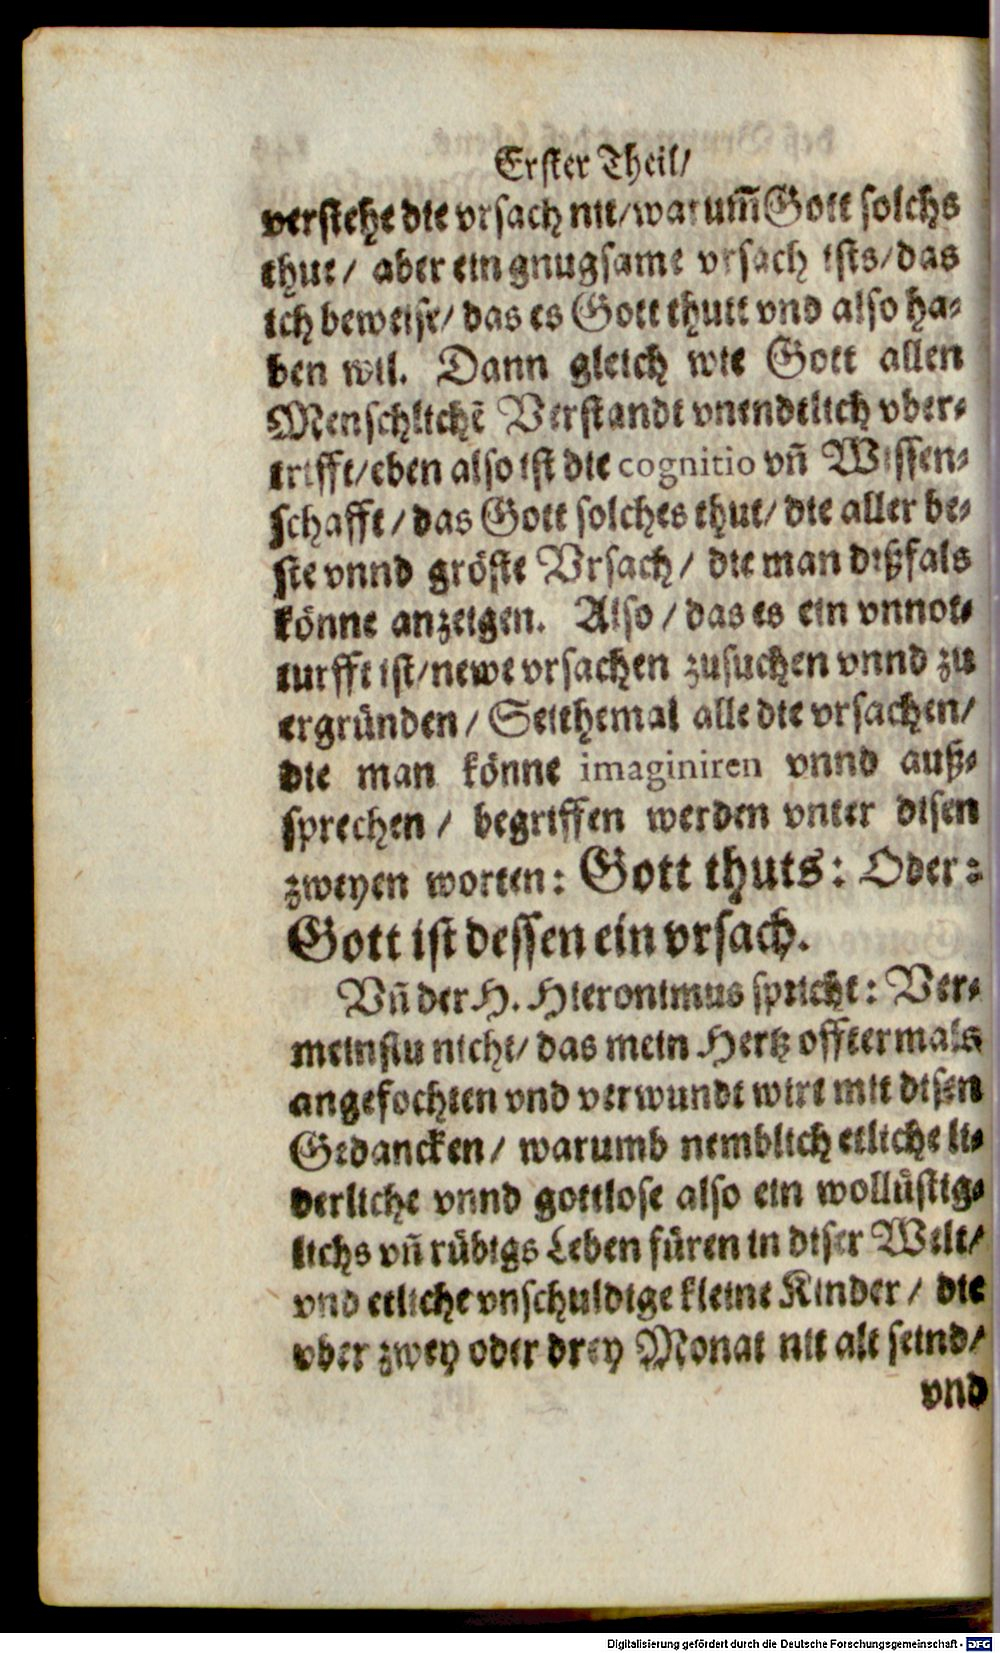 Erster Theil/
verstehe die vrsach nit/warum̃ Gott solchs
thut/ aber ein gnugsame vrsach ists/das
ich beweise/ das es Gott thutt vnd also ha-
ben wil. Dann gleich wie Gott allen
Menschlichẽ Verstandt vnendtlich vber-
trifft/eben also ist die cognitio vñ Wissen-
schafft/das Gott solches thut/ die aller be-
ste vnnd gröste Vrsach/ die man dißfals
könne anzeigen. Also/das es ein vnnot-
turfft ist/newe vrsachen zusuchen vnnd zu
ergründen/ Seitehemal alle die vrsachen/
die man könne imaginiren vnnd auß-
sprechen/ begriffen werden vnter disen
zweyen worten: Gott thuts: Oder:
Gott ist dessen ein vrsach.
Vñ der H. Hieronimus spricht: Ver-
meinstu nicht/ das mein Hertz offtermals
angefochten vnd verwundt wirt mit disen
Gedancken/ warumb nemblich etliche li-
derliche vnnd gottlose also ein wollüstig-
lichs vñ rübigs Leben füren in diser Welt/
vnd etliche vnschuldige kleine Kinder/ die
vber zwey oder drey Monat nit alt seind/
vnd
Digitalisierung gefördert durch die Deutsche Forschungsgemeinschaft - DFG